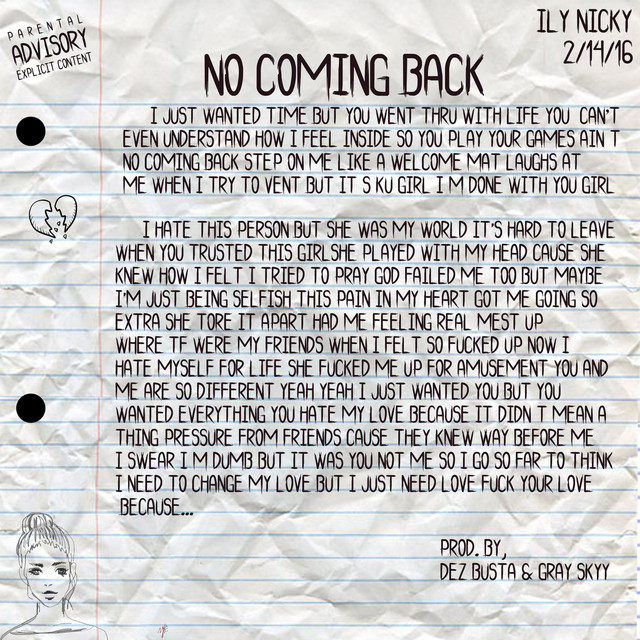 PARENTAL
ADVISORY
EXPLICIT CONTENT
ILY NICKY
2/14/16
NO COMING BACK
I JUST WANTED TIME BUT YOU WENT THRU WITH LIFE YOU CAN'T
EVEN UNDERSTAND HOW I FEEL INSIDE SO YOU PLAY YOUR GAMES AIN T
NO COMING BACK STEP ON ME LIKE A WELCOME MAT LAUGHS AT
ME WHEN I TRY TO VENT BUT IT S KU GIRL I M DONE WITH YOU GIRL
I HATE THIS PERSON BUT SHE WAS MY WORLD IT'S HARD TO LEAVE
WHEN YOU TRUSTED THIS GIRLSHE PLAYED WITH MY HEAD CAUSE SHE
KNEW HOW I FELT I TRIED TO PRAY GOD FAILED ME TOO BUT MAYBE
I'M JUST BEING SELFISH THIS PAIN IN MY HEART GOT ME GOING SO
EXTRA SHE TORE IT APART HAD ME FEELING REAL MEST UP
WHERE TF WERE MY FRIENDS WHEN I FELT SO FUCKED UP NOW I
HATE MYSELF FOR LIFE SHE FUCKED ME UP FOR AMUSEMENT YOU AND
ME ARE SO DIFFERENT YEAH YEAH I JUST WANTED YOU BUT YOU
WANTED EVERYTHING YOU HATE MY LOVE BECAUSE IT DIDN T MEAN A
THING PRESSURE FROM FRIENDS CAUSE THEY KNEW WAY BEFORE ME
I SWEAR I M DUMB BUT IT WAS YOU NOT ME SO I GO SO FAR TO THINK
I NEED TO CHANGE MY LOVE BUT I JUST NEED LOVE FUCK YOUR LOVE
BECAUSE...
PROD. BY,
DEZ BUSTA & GRAY SKYY